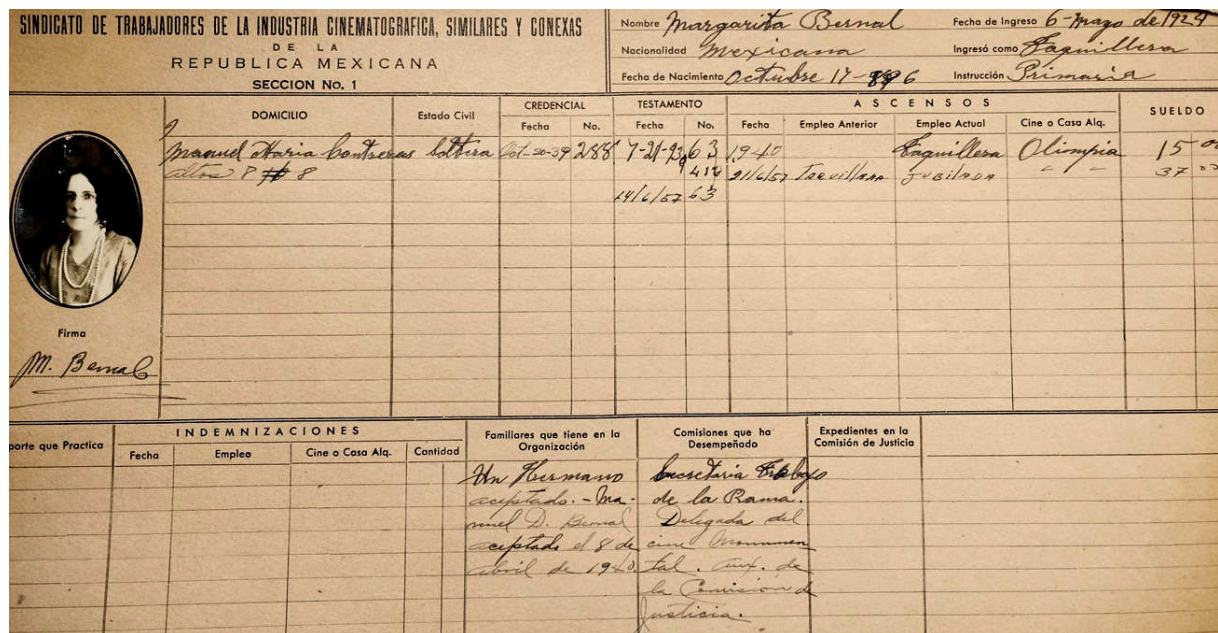 SINDICATO DE TRABAJADORES DE LA INDUSTRIA CINEMATOGRAFICA, SIMILARES Y CONEXAS
DE LA
REPUBLICA MEXICANA
SECCION No. 1
Nombre Margarita Bernal
Fecha de Ingreso 6-Mayo de 1924
Nacionalidad Mexicana
Ingresó como Taquillera
Fecha de Nacimiento Octubre 17-896
Instrucción Primaria
DOMICILIO Estado Civil CREDENCIAL TESTAMENTO ASCENSOS SUELDO
Fecha No. Fecha No. Fecha Empleo Anterior Empleo Actual Cine o Casa Alq.
Manuel Maria Contreras Soltera Oct-20-39 288 63 1940 Taquillera Olimpia 15 00
altos 8 # 8 21/6/57 Taquillera JUBILADA " " 37 00
14/6/57 63
Firma
M. Bernal
porte que Practica INDEMNIZACIONES
Fecha Empleo Cine o Casa Alq. Cantidad
Familiares que tiene en la
Organización
Un Hermano
aceptado.-Ma-
nuel D. Bernal
aceptado el 8 de
abril de 1940.
Comisiones que ha
Desempeñado
Secretaria Trabajo
de la Rama.
Delegada del
cine Monumen
tal. Aux. de
la Comisión de
Justicia.
Expedientes en la
Comisión de Justicia